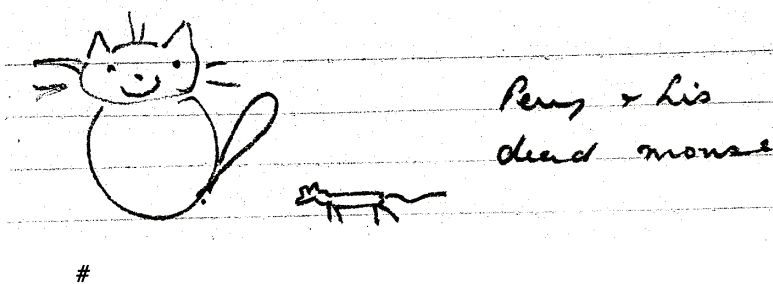 Percy + his
dead mouse
#